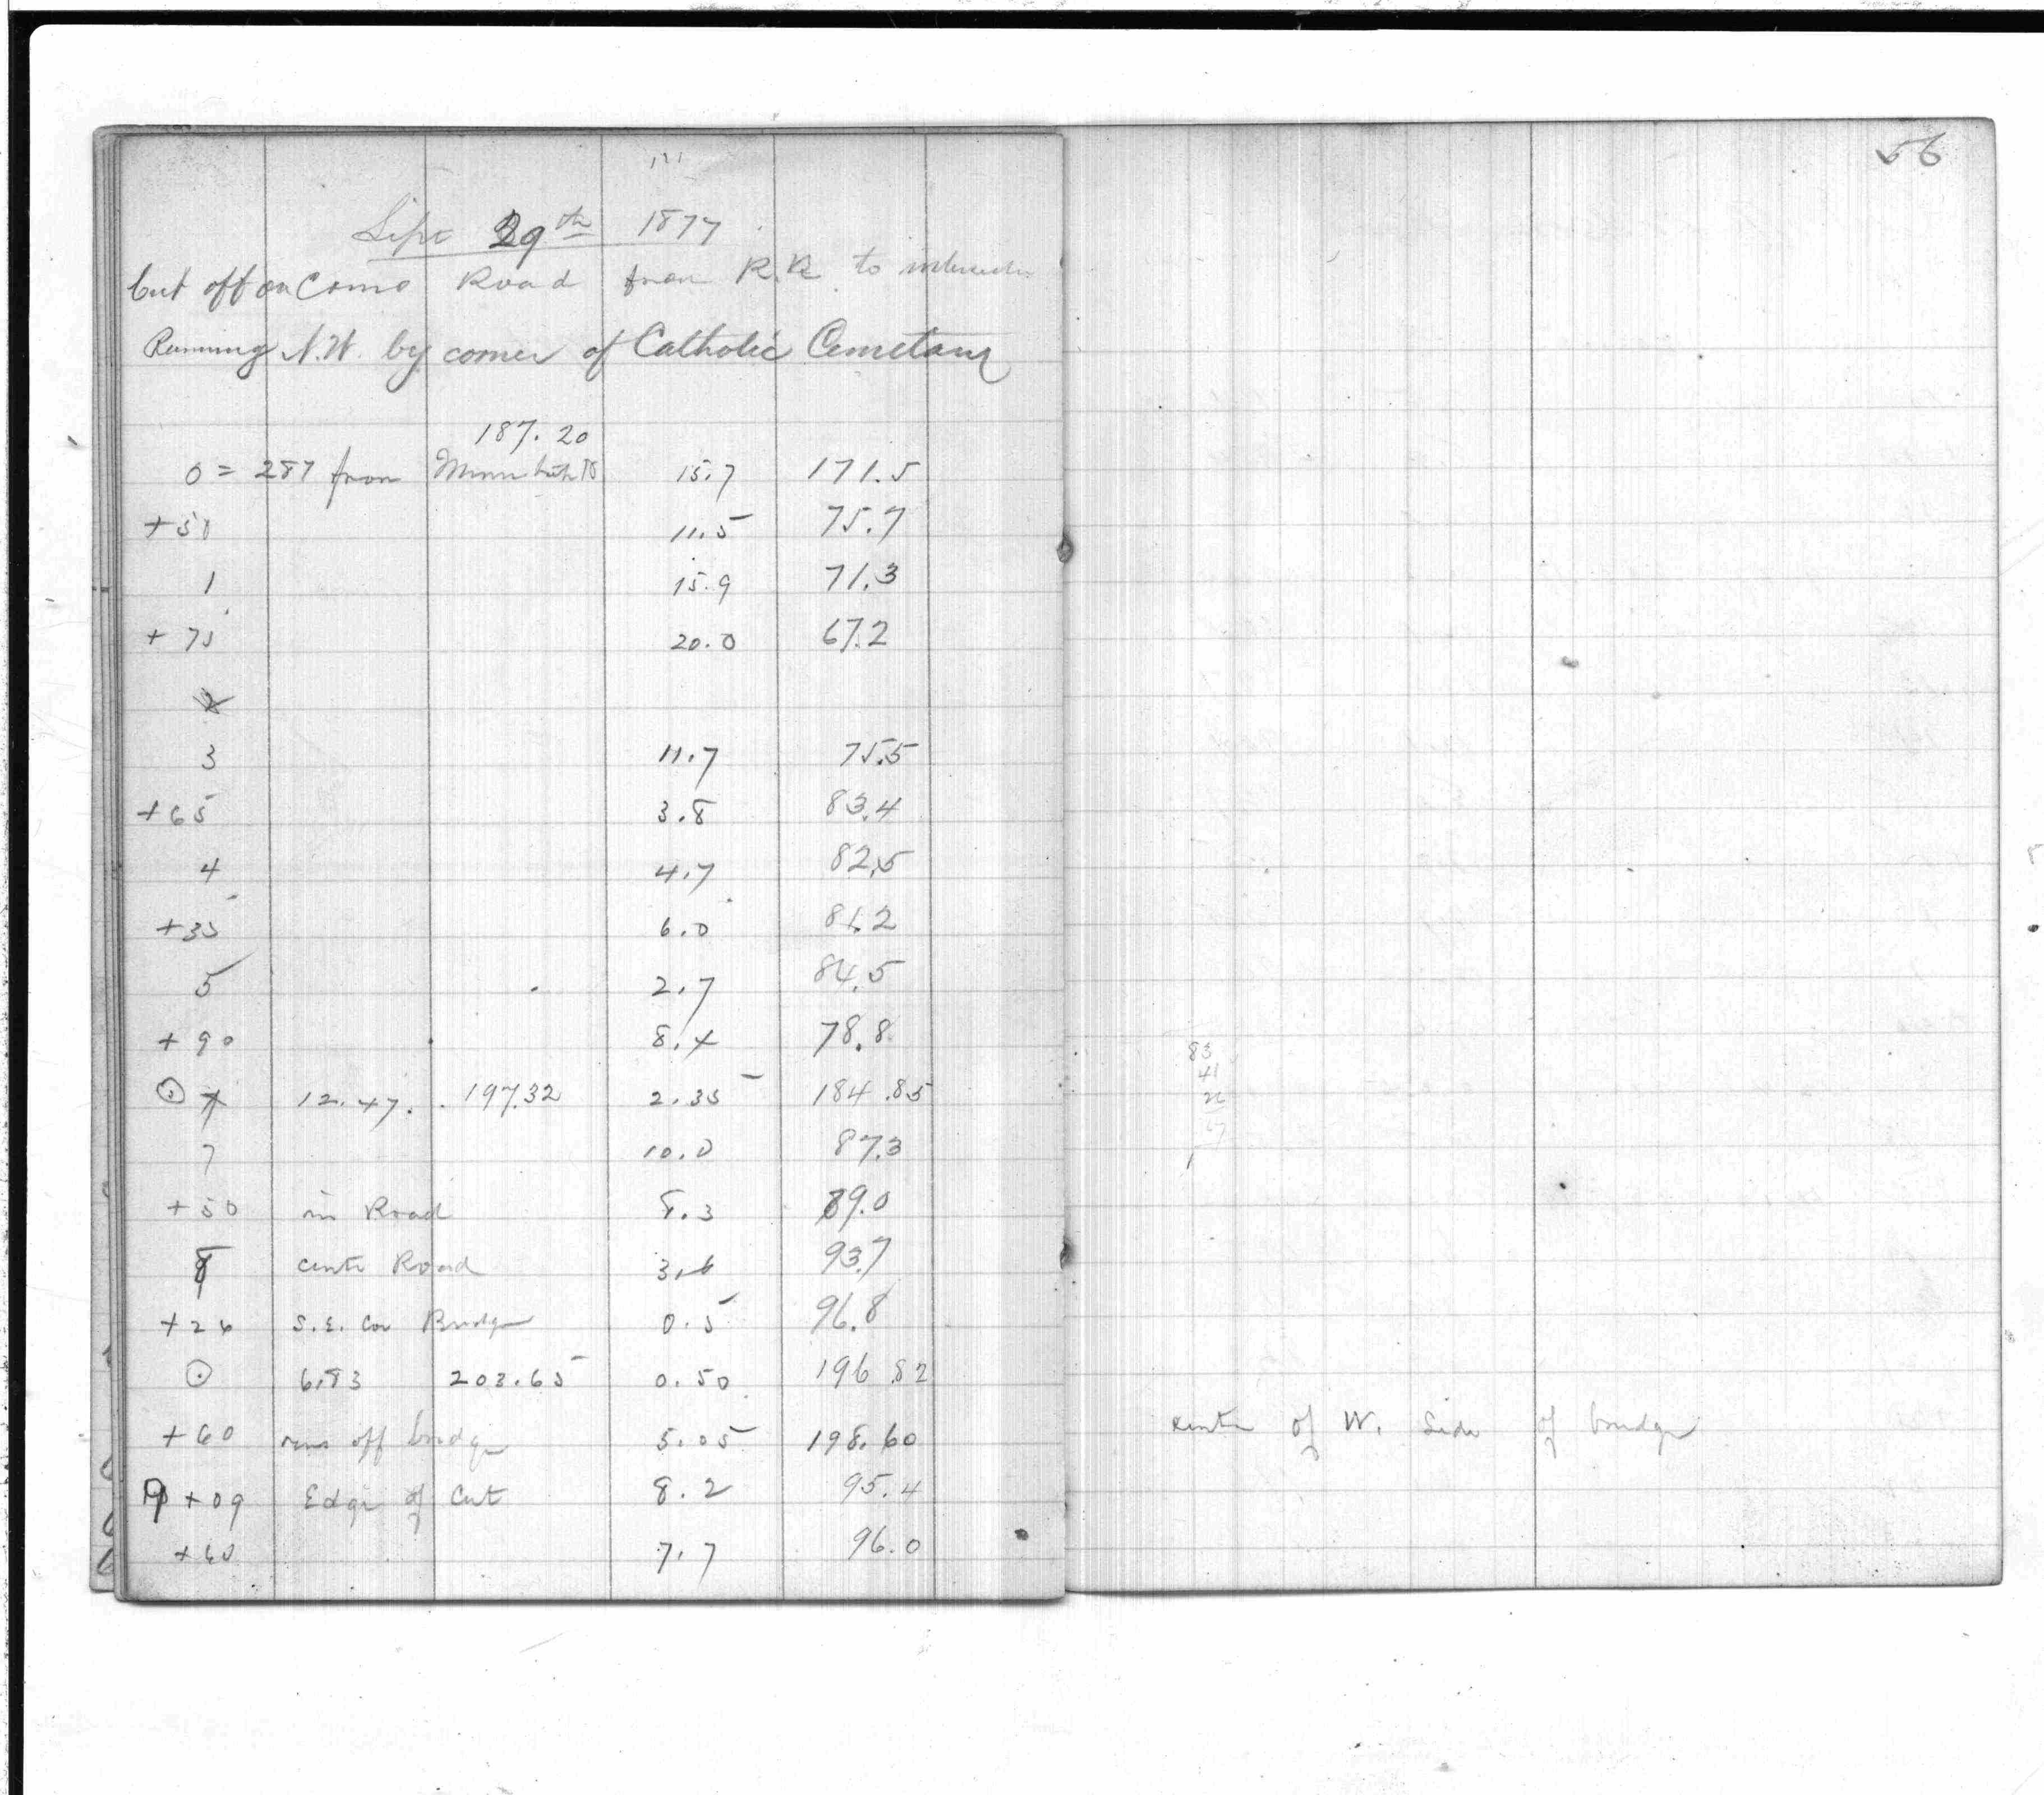 Sept 29th 1877
Cut off on Como Road from R.R. to intersection
Running N.W. by corner of Catholic Cemetary
187.20
0 = 287 from 15.7 171.5
+50 11.5 75.7
1 15.9 71.3
+75 20.0 67.2
2
3 11.7 75.5
+65 3.8 83.4
4 4.7 82.5
+35 6.0 81.2
5 2.7 84.5
+90 8.4 78.8
⊙ 12.47 197.32 2.35 184.85
7 10.0 87.3
+50 in Road 8.3 89.0
8 cente Road 3.6 93.7
+26 S.E. Cor Bridge 0.5 96.8
⊙ 6.83 203.65 0.50 196.82
+60 off bridge 5.05 198.60
9 +09 Edge of Cut 8.2 95.4
+60 7.7 96.0
56
83
41
center of W. Side of bridge